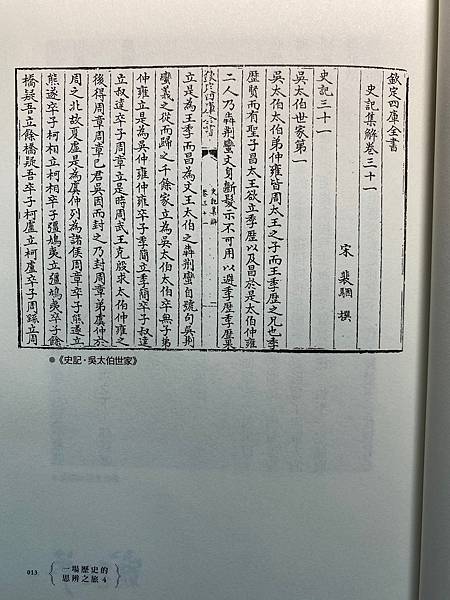 欽定四庫全書
史記集解卷三十一
宋 裴駰 撰
史記三十一
吳太伯世家第一
吳太伯太伯弟仲雍皆周太王之子而王季歷之兄也季
歷賢而有聖子昌太王欲立季歷以及昌於是太伯仲雍
二人乃犇荆蠻文身斷髮示不可用以避季歷季歷果
欽定四庫全書
史記集解
卷三十一
立是為王季而昌為文王太伯之犇荆蠻自號句吳荆
蠻義之從而歸之千餘家立為吳太伯太伯卒無子弟
仲雍立是為吳仲雍仲雍卒子季簡立季簡卒子叔達
立叔達卒子周章立是時周武王克殷求太伯仲雍之
後得周章周章已君吳因而封之乃封周章弟虞仲於
周之北故夏虛是為虞仲列為諸侯周章卒子熊遂立
熊遂卒子柯相立柯相卒子彊鳩夷立彊鳩夷卒子餘
橋疑吾立餘橋疑吾卒子柯盧立柯盧卒子周繇立周
●《史記·吳太伯世家》
013
一場歷史的
思辨之旅4